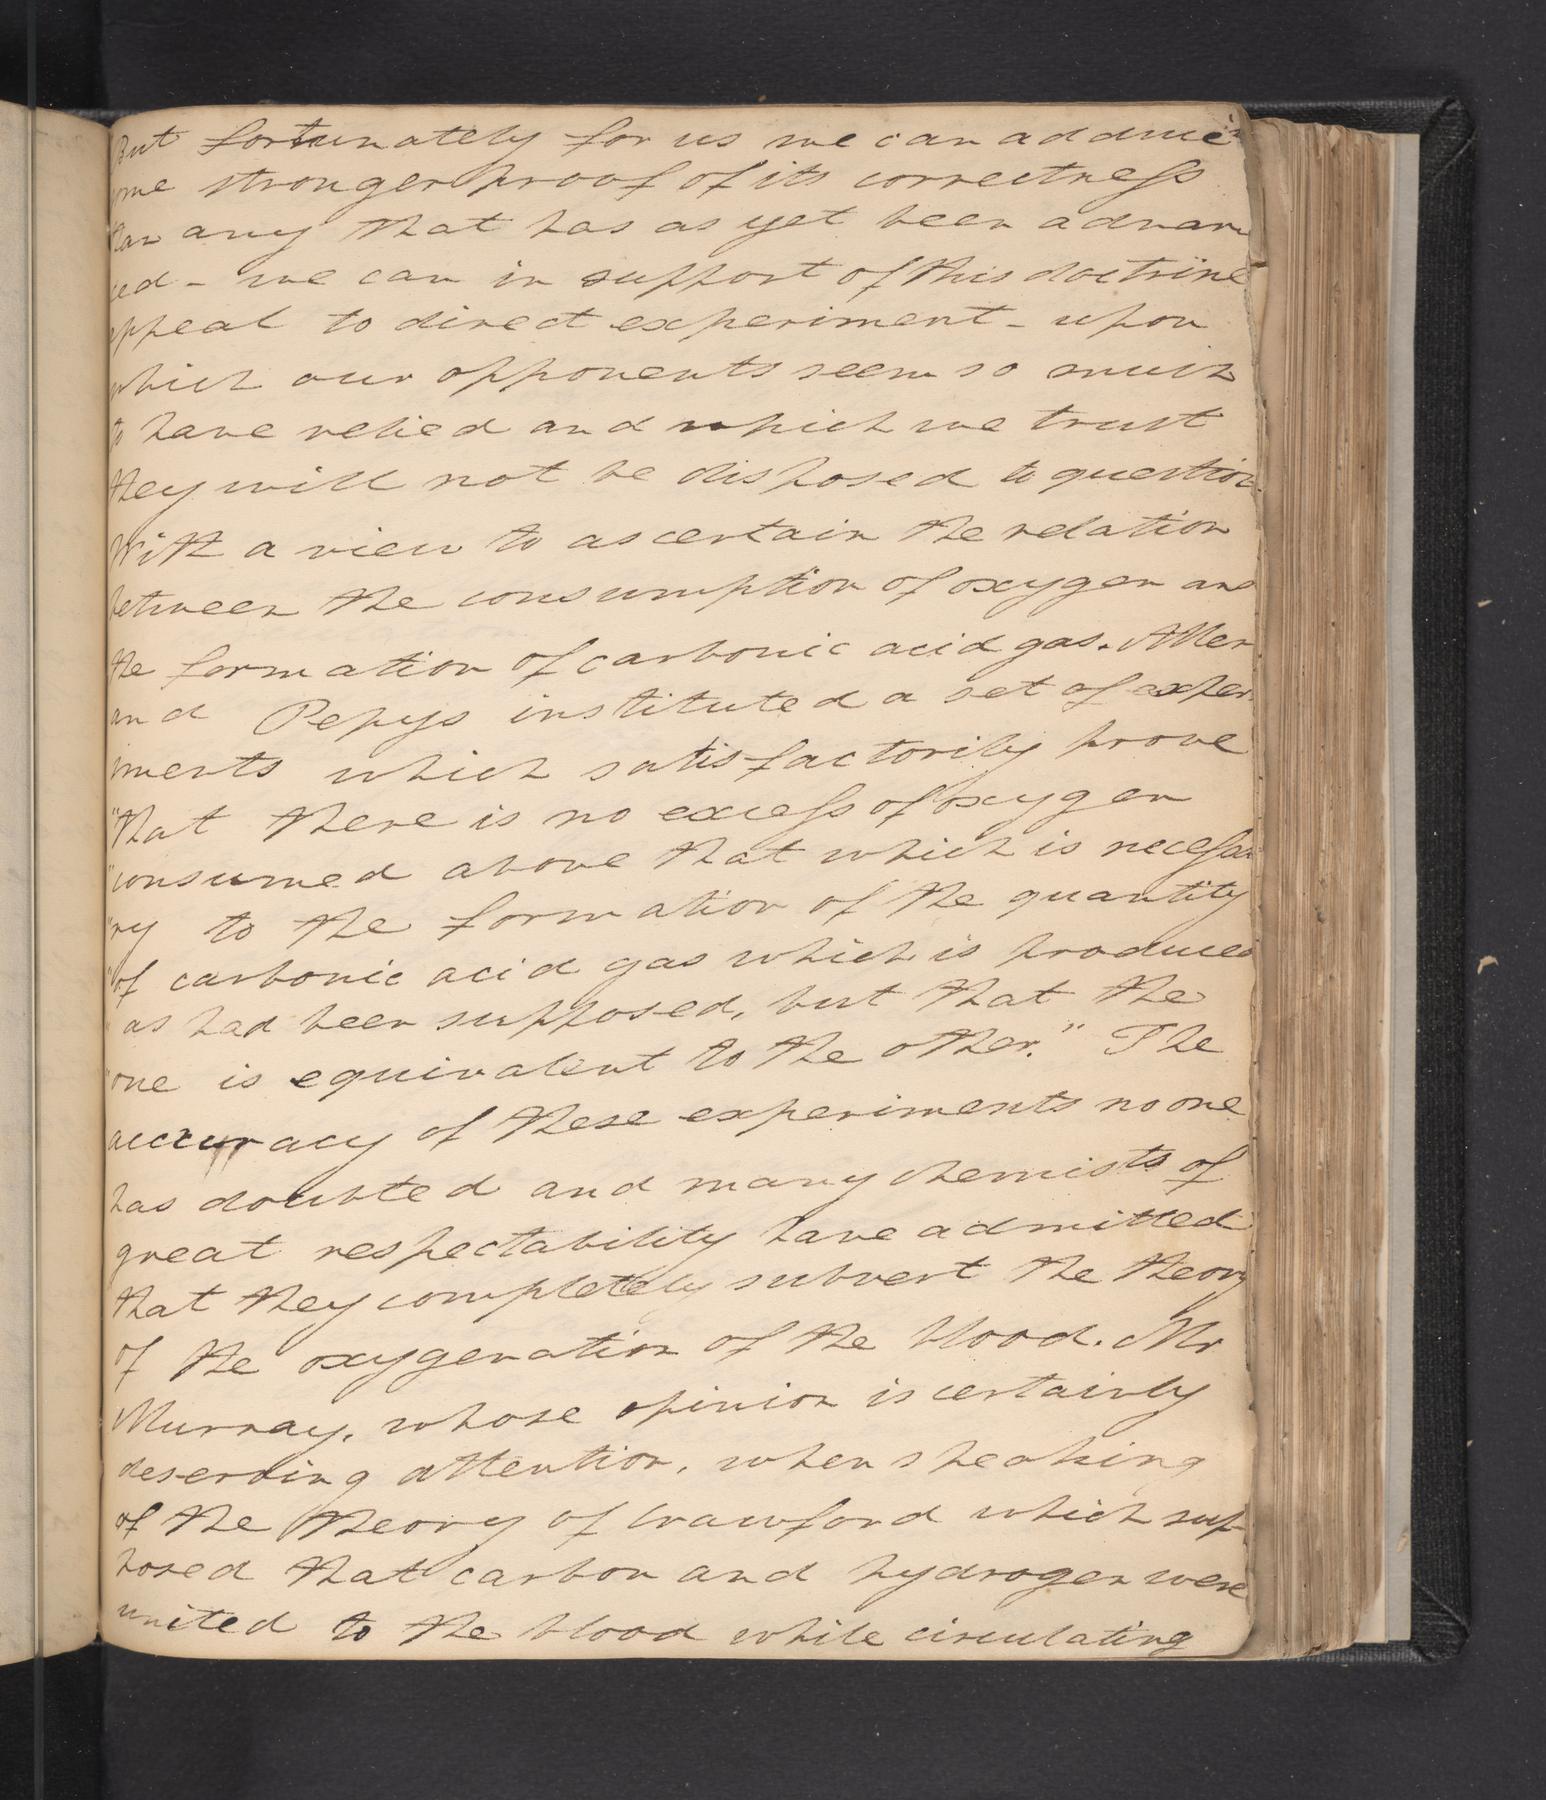 But fortunately for us we can adduce
some stronger proof of its correctness
than any that has as yet been advan
ced - we can in support of this doctrine
appeal to direct experiment - upon
which our opponents seem so much
to have relied and which we trust
they will not be disposed to question.
With a view to ascertain the relation
between the consumption of oxygen and
the formation of carbonic acid gas. Allen
and Pepys instituted a set of exper
iments which satisfactorily prove
"that there is no excess of oxygen
"consumed above that which is necessa
"ry to the formation of the quantity
"of carbonic acid gas which is produced
"as had been supposed, but that the
"one is equivalent to the other." The
accuracy of these experiments no one
has doubted and many chemists of
great respectability have admitted
that they completely subvert the theory
of the oxygenation of the blood. Mr
Murray, whose opinion is certainly
deserving attention, when speaking
of the theory of Crawford which sup-
posed that carbon and hydrogen were
united to the blood while circulating